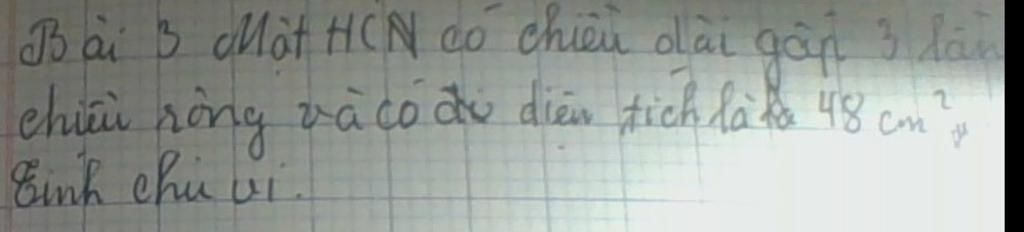 Bài 3 Một HCN có chiều dài gấp 3 lần
chiều rộng và có diện tích là 48 cm².
Tính chu vi.